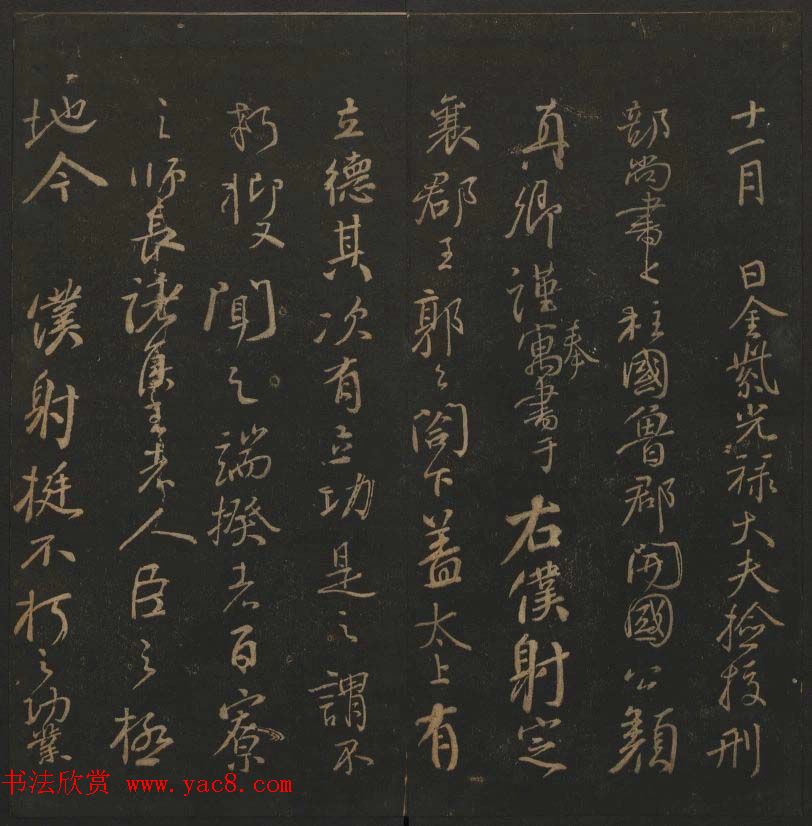 十一月 日金紫光祿大夫撿挍刑
部尚書上柱國魯郡開國公顏
真卿謹奉寓書于 右僕射定
襄郡王郭公閤下蓋太上有
立德其次有立功是之謂不
朽抑又聞之端揆者百寮
之師長諸侯王者人臣之極
地今 僕射挺不朽之功業
书法欣赏 www.yac8.com